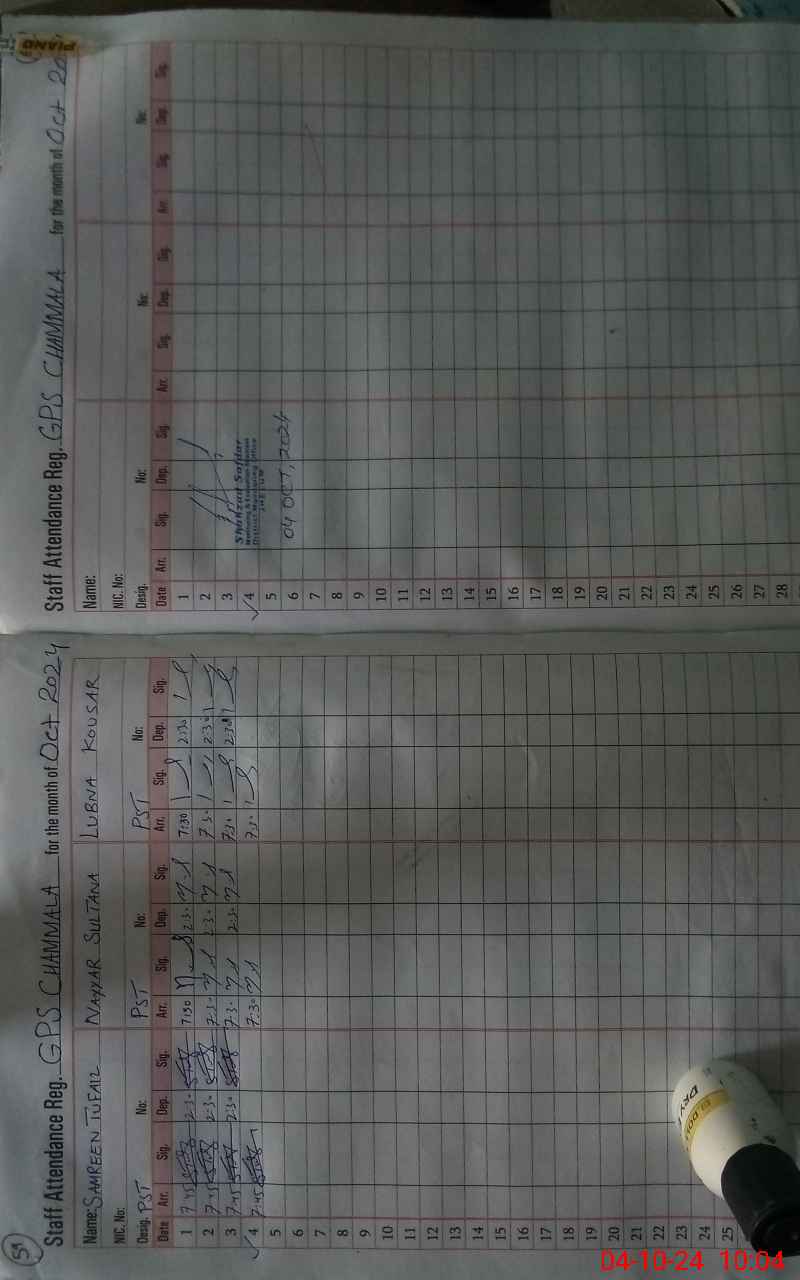 59
Staff Attendance Reg. GPS CHAMMALA for the month of Oct 2024
Name: SAMREEN TUFAIL NAYYAR SULTANA LUBNA KOUSAR
NIC. No:
Desig. PST No: PST No: PST No:
Date Arr. Sig. Dep. Sig. Arr. Sig. Dep. Sig. Arr. Sig. Dep. Sig.
1 7:45 2:3. 7:30 2:3. 7:30 2:30
2 7:45 2:3. 7:3. 2:3. 7:3. 2:3.
3 7:45 2:3. 7:3. 2:3. 7:3. 2:3.
4 7:45 7:30 7:3.
5
6
7
8
9
10
11
12
13
14
15
16
17
18
19
20
21
22
23
24
25
Staff Attendance Reg. GPS CHAMMALA for the month of Oct 20
Name:
NIC. No:
Desig. No: No: No:
Date Arr. Sig. Dep. Sig. Arr. Sig. Dep. Sig. Arr. Sig. Dep. Sig.
1
2
3
4 Shahzad Safdar
Monitoring & Evaluation Assistant
District Monitoring Office
JHELUM
5
6 04 OCT, 2024
7
8
9
10
11
12
13
14
15
16
17
18
19
20
21
22
23
24
25
26
27
28
PIANO
DOLL
DRY
04-10-24 10:04